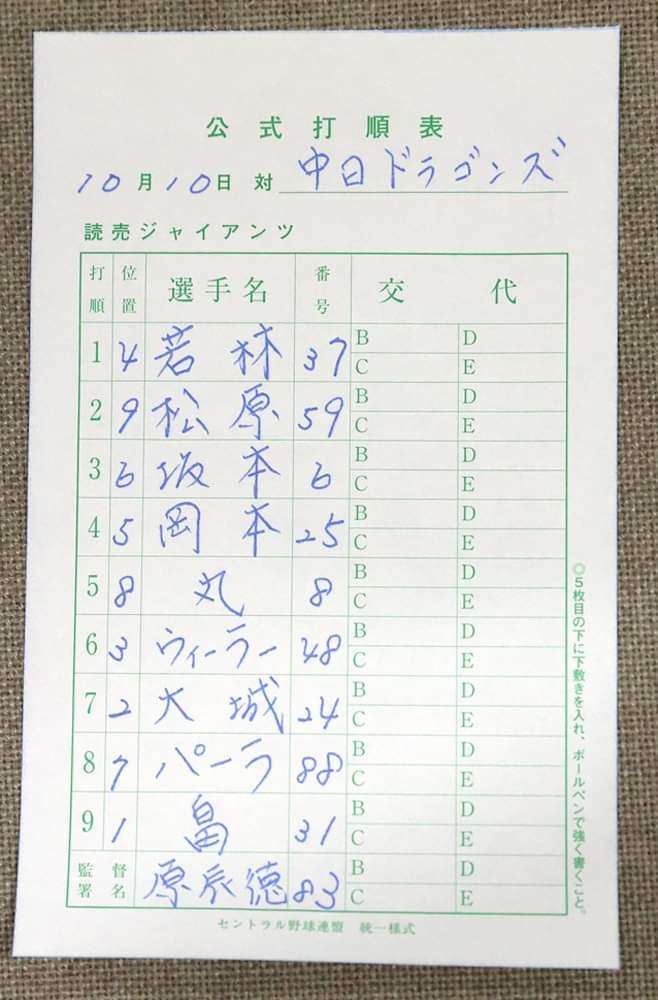 公式打順表
10月10日 対 中日ドラゴンズ
読売ジャイアンツ
打順 位置 選手名 番号 交代
1 4 若林 37 B D
C E
2 9 松原 59 B D
C E
3 6 坂本 6 B D
C E
4 5 岡本 25 B D
C E
5 8 丸 8 B D
C E
6 3 ウィーラー 48 B D
C E
7 2 大城 24 B D
C E
8 7 パーラ 88 B D
C E
9 1 畠 31 B D
C E
監督署名 原辰徳 83 B D
C E
◎5枚目の下に下敷きを入れ、ボールペンで強く書くこと。
セントラル野球連盟 統一様式